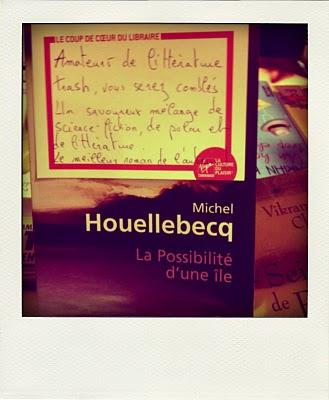 LE COUP DE CŒUR DU LIBRAIRE
Amateurs de littérature
trash, vous serez comblés
Un savoureux mélange de
science-fiction, de polar et
de littérature.
Le meilleur roman de l'au
Virgin
LA
CULTURE
DU
PLAISIR
Michel
Houellebecq
La Possibilité
d'une île
Vikram